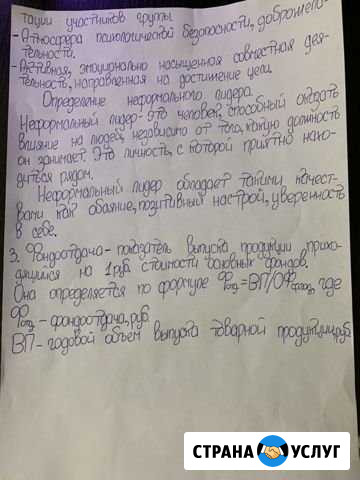 тации участников группы.
- Атмосфера психологической безопасности, доброжела-
тельности.
- Активная, эмоционально насыщенная совместная дея-
тельность, направленная на достижение цели.
Определение неформального лидера.
Неформальный лидер - это человек, способный оказать
влияние на людей, независимо от того, какую должность
он занимает. Это личность, с которой приятно нахо-
диться рядом.
Неформальный лидер обладает такими качест-
вами как обаяние, позитивный настрой, уверенность
в себе.
3. Фондоотдача - показатель выпуска продукции прихо-
дящийся на 1 руб стоимости основных фондов.
Она определяется по формуле Фотд = ВП/ОФ где
Фотд - фондоотдача, руб
ВП - годовой объем выпуска товарной продукции, руб
СТРАНА УСЛУГ